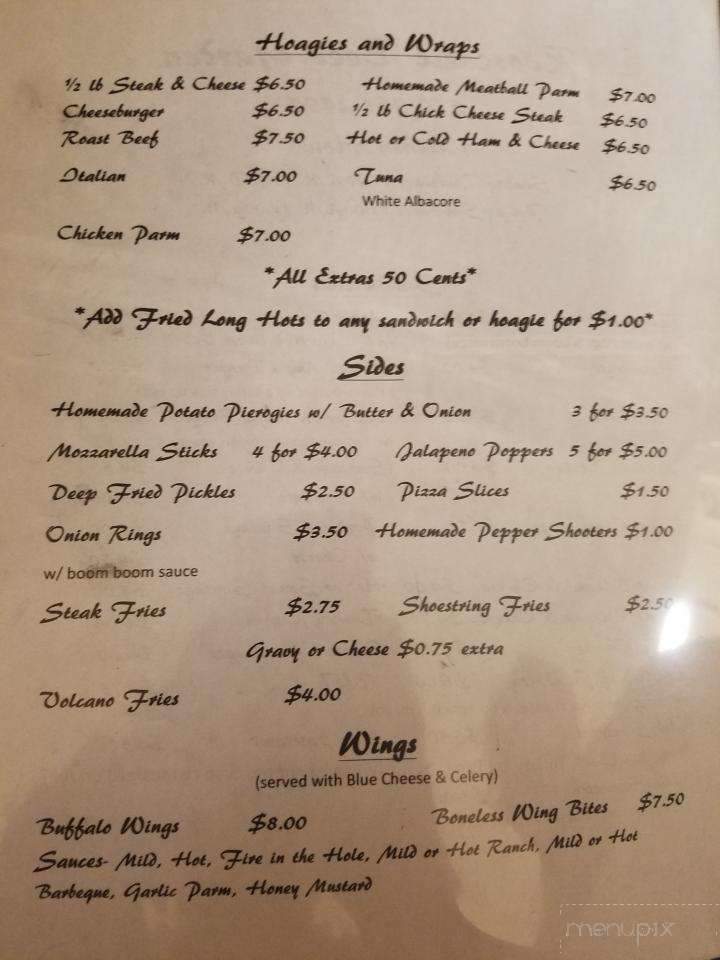 Hoagies and Wraps
½ lb Steak & Cheese $6.50 Homemade Meatball Parm $7.00
Cheeseburger $6.50 ½ lb Chick Cheese Steak $6.50
Roast Beef $7.50 Hot or Cold Ham & Cheese $6.50
Italian $7.00 Tuna $6.50
White Albacore
Chicken Parm $7.00
*All Extras 50 Cents*
*Add Fried Long Hots to any sandwich or hoagie for $1.00*
Sides
Homemade Potato Pierogies w/ Butter & Onion 3 for $3.50
Mozzarella Sticks 4 for $4.00 Jalapeno Poppers 5 for $5.00
Deep Fried Pickles $2.50 Pizza Slices $1.50
Onion Rings $3.50 Homemade Pepper Shooters $1.00
w/ boom boom sauce
Steak Fries $2.75 Shoestring Fries $2.50
Gravy or Cheese $0.75 extra
Volcano Fries $4.00
Wings
(served with Blue Cheese & Celery)
Buffalo Wings $8.00 Boneless Wing Bites $7.50
Sauces- Mild, Hot, Fire in the Hole, Mild or Hot Ranch, Mild or Hot
Barbeque, Garlic Parm, Honey Mustard
menupix